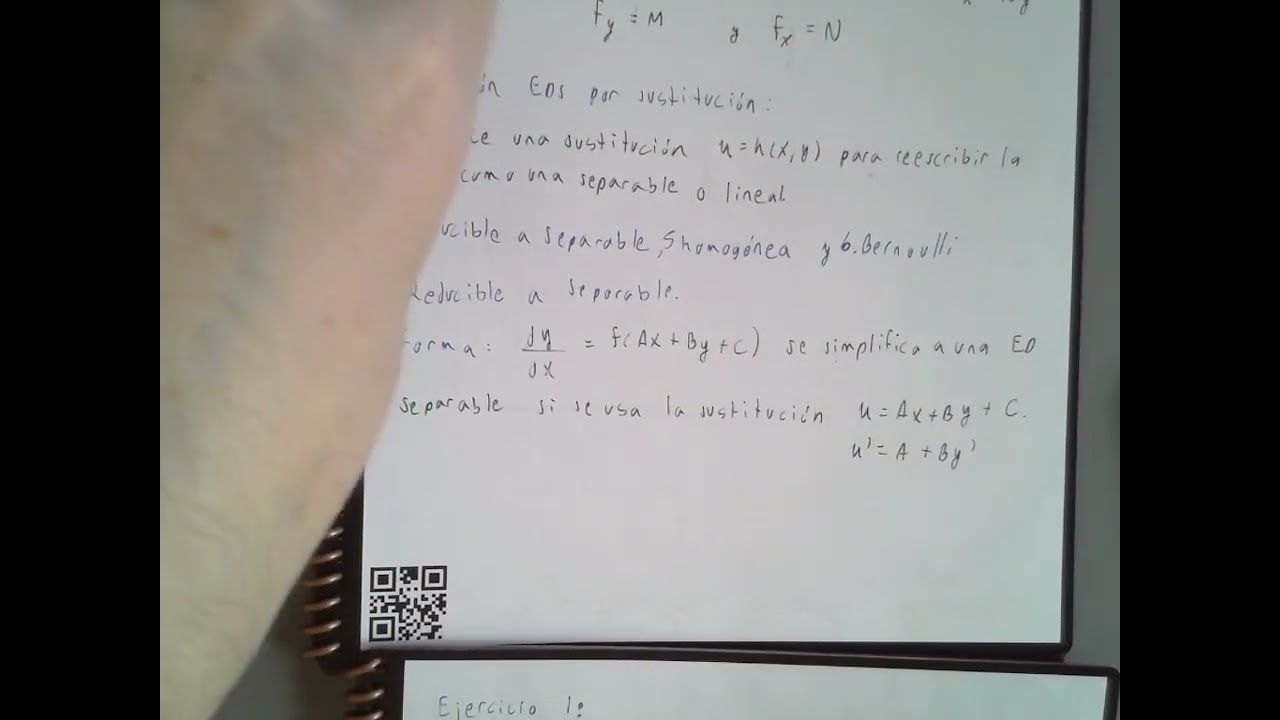 fy = M y fx = N
EDs por sustitución:
una sustitución u = h(x,y) para reescribir la
como una separable o lineal.
a separable, 5 homogónea y 6. Bernoulli
Reducible a separable.
forma: dy/dx = f(Ax + By + C) se simplifica a una ED
separable si se usa la sustitución u = Ax + By + C.
u' = A + By'
Ejercicio 1: